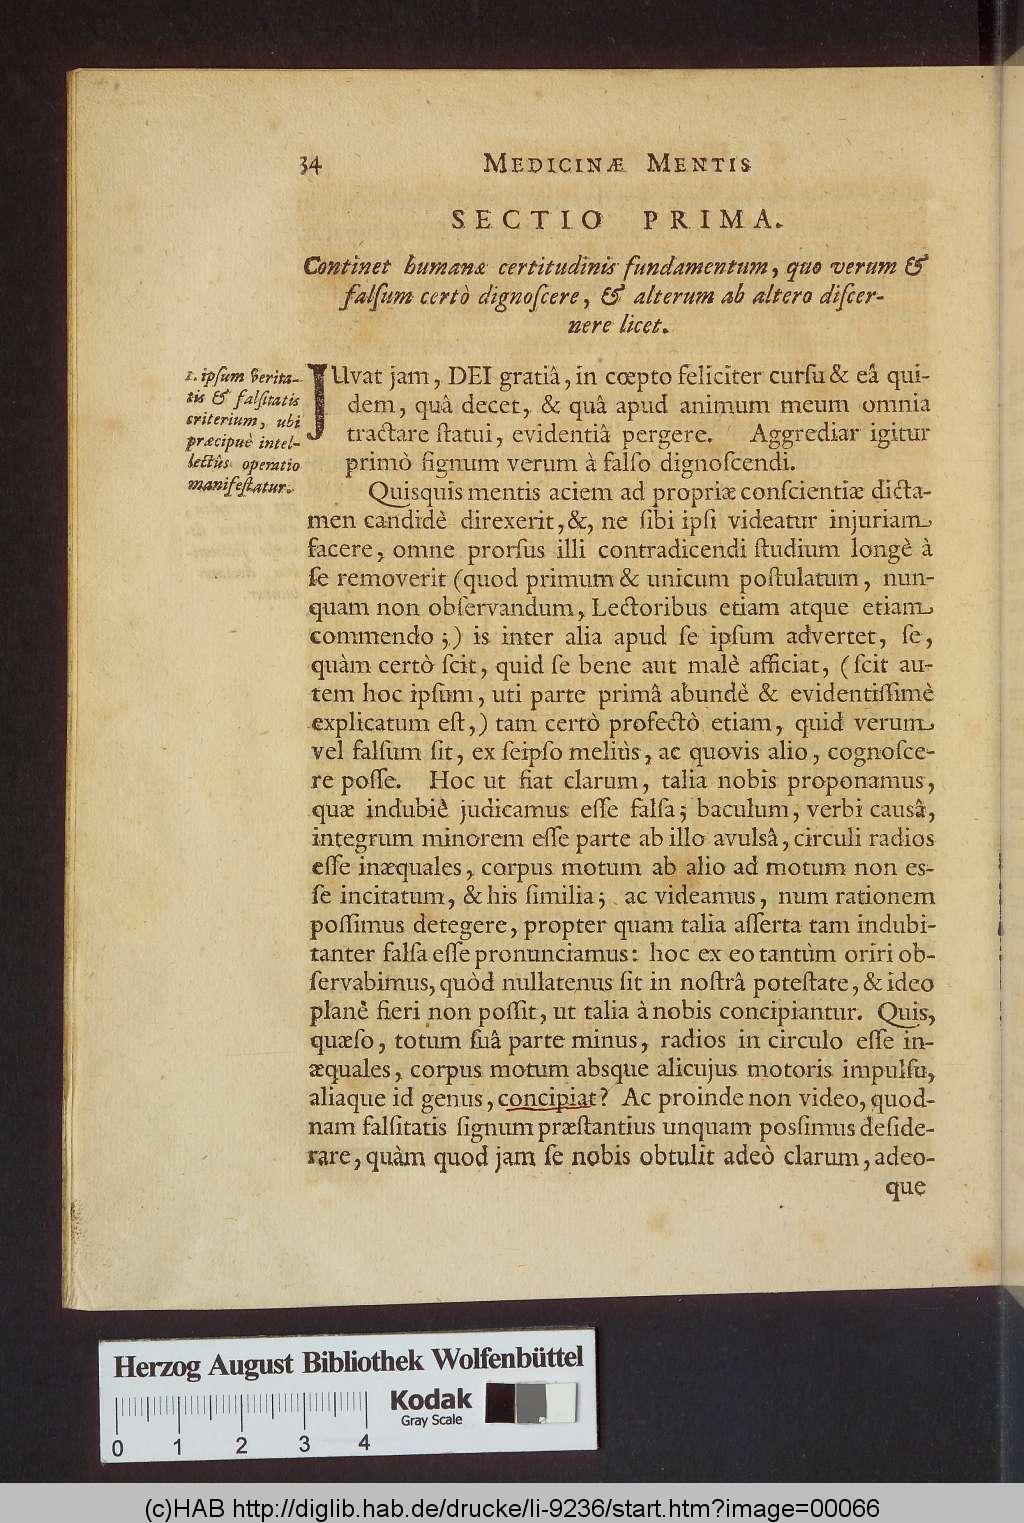 34 MEDICINÆ MENTIS
SECTIO PRIMA.
Continet humanæ certitudinis fundamentum, quo verum &
falſum certò dignoſcere, & alterum ab altero diſcer-
nere licet.
1. ipſum verita-
tis & falſitatis
criterium, ubi
præcipuè intel-
lectûs operatio
manifeſtatur.
JUvat jam, DEI gratiâ, in cœpto feliciter curſu & eâ qui-
dem, quâ decet, & quâ apud animum meum omnia
tractare ſtatui, evidentiâ pergere. Aggrediar igitur
primò ſignum verum à falſo dignoſcendi.
Quisquis mentis aciem ad propriæ conſcientiæ dicta-
men candidè direxerit, &, ne ſibi ipſi videatur injuriam
facere, omne prorſus illi contradicendi ſtudium longè à
ſe removerit (quod primum & unicum poſtulatum, nun-
quam non obſervandum, Lectoribus etiam atque etiam
commendo;) is inter alia apud ſe ipſum advertet, ſe,
quàm certò ſcit, quid ſe bene aut malè afficiat, (ſcit au-
tem hoc ipſum, uti parte primâ abundè & evidentiſſimè
explicatum eſt,) tam certò profectò etiam, quid verum
vel falſum ſit, ex ſeipſo meliùs, ac quovis alio, cognoſce-
re poſſe. Hoc ut fiat clarum, talia nobis proponamus,
quæ indubiè judicamus eſſe falſa; baculum, verbi causâ,
integrum minorem eſſe parte ab illo avulsâ, circuli radios
eſſe inæquales, corpus motum ab alio ad motum non es-
ſe incitatum, & his ſimilia; ac videamus, num rationem
poſſimus detegere, propter quam talia aſſerta tam indubi-
tanter falſa eſſe pronunciamus: hoc ex eo tantùm oriri ob-
ſervabimus, quòd nullatenus ſit in noſtrâ poteſtate, & ideo
planè fieri non poſſit, ut talia à nobis concipiantur. Quis,
quæſo, totum ſuâ parte minus, radios in circulo eſſe in-
æquales, corpus motum absque alicujus motoris impulſu,
aliaque id genus, concipiat? Ac proinde non video, quod-
nam falſitatis ſignum præſtantius unquam possimus deſide-
rare, quàm quod jam ſe nobis obtulit adeò clarum, adeo-
que
Herzog August Bibliothek Wolfenbüttel
Kodak
Gray Scale
0 1 2 3 4
(c)HAB http://diglib.hab.de/drucke/li-9236/start.htm?image=00066